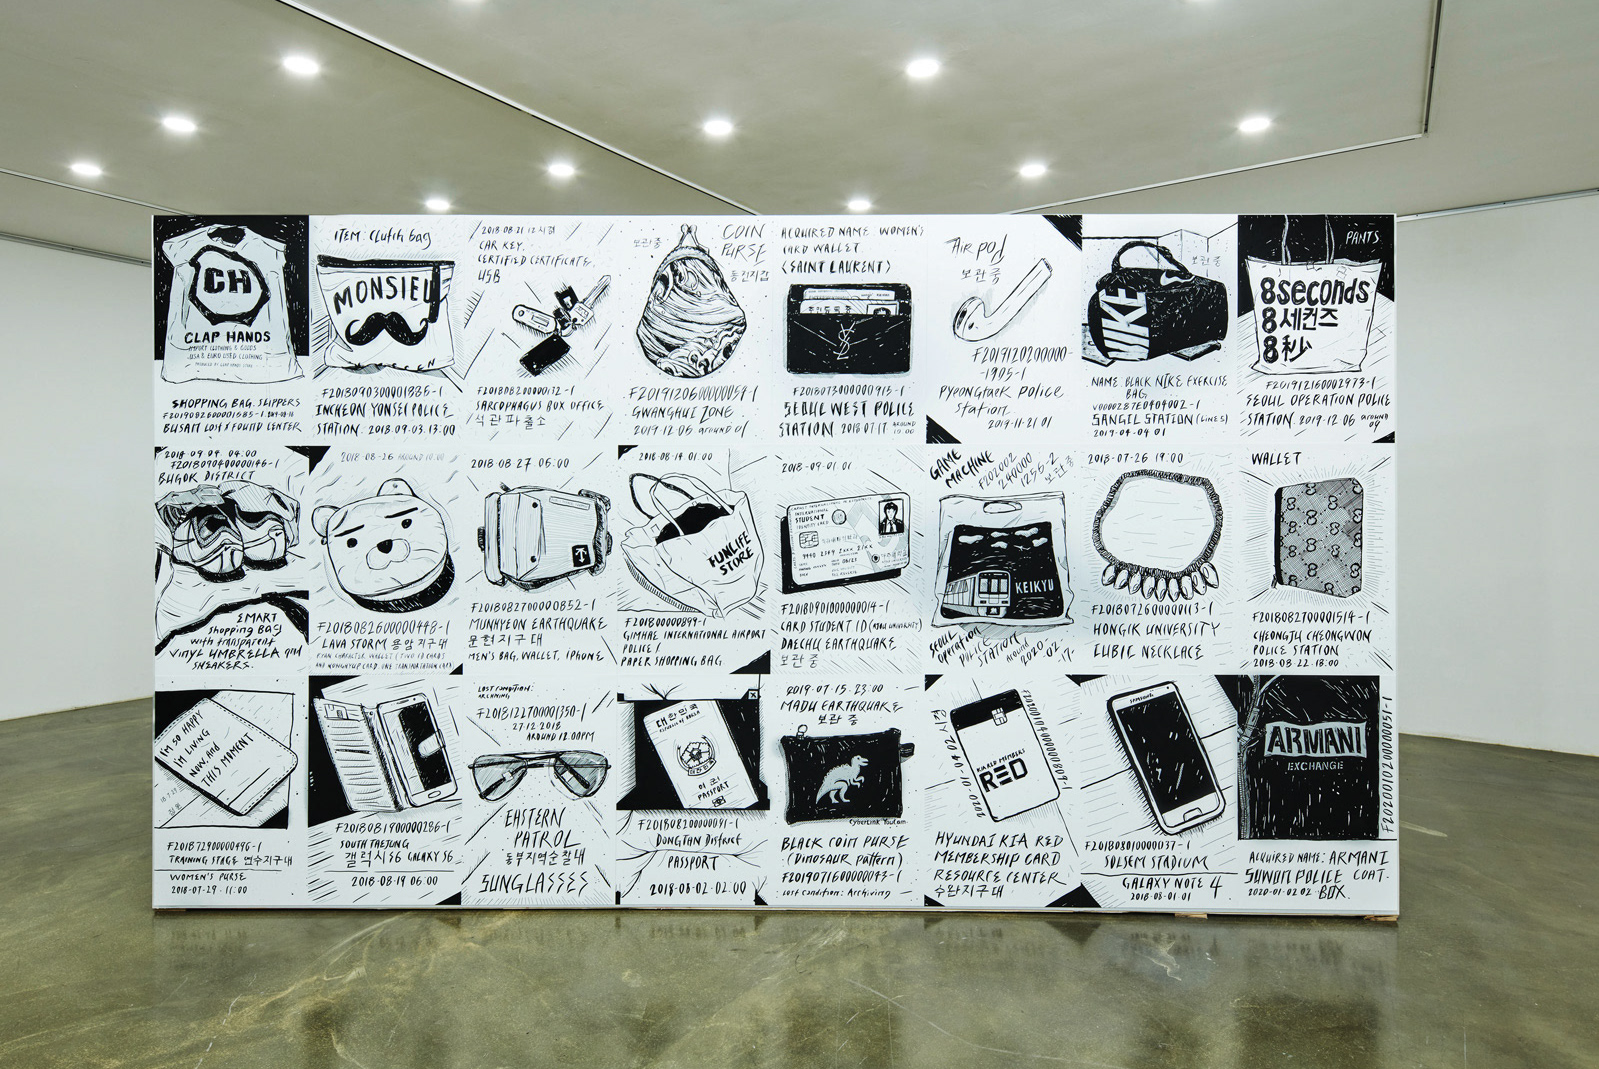 CH
CLAP HANDS
IMPORT CLOTHING & GOODS
USA & EURO USED CLOTHING
SHOPPING BAG. SLIPPERS
F2019082600001685-1
BUSAN LOST & FOUND CENTER
ITEM: Clutch bag
MONSIEU
F2018090300001885-1
INCHEON YONSEI POLICE
STATION. 2018.09.03. 13:00
2018.08.21 12시경
CAR KEY.
CERTIFIED CERTIFICATE.
USB
SARCOPHAGUS BOX OFFICE
석관파출소
보관중
COIN
PURSE
동전지갑
GWANGHUI ZONE
2019.12.06 around 01
ACQUIRED NAME: WOMEN'S
CARD WALLET
<SAINT LAURENT>
SEOUL WEST POLICE
STATION. 2018.07.17 AROUND
Air pod
보관중
F2019120200000-
1905-1
Pyeongtaek Police
Station
2019-11-21 01
보관중
NIKE
NAME: BLACK NIKE EXERCISE
BAG
V0000287E0404002-1
SANGIL STATION (LINES)
2019-04-04 01
PANTS
8seconds
8세컨즈
8秒
F2019121600002973-1
SEOUL OPERATION POLICE
STATION. 2019.12.06 around
04
2018.09.04. 04:00
F2018090400000146-1
BUGOK DISTRICT
EMART
Shopping Bag
with transparent
Vinyl UMBRELLA and
SNEAKERS.
2018-08-26 AROUND 10:00
F2018082600000448-1
LAVA STORM 용암지구대
2018 08 27 06:00
F2018082700000852-1
MUNHYEON EARTHQUAKE
문현지구대
MEN'S BAG, WALLET, iPHONE
2018-08-14. 01:00
FUNLIFE
STORE
F201800000899-1
GIMHAE INTERNATIONAL AIRPORT
POLICE /
PAPER SHOPPING BAG
2018-09-01 01
INTERNATIONAL
STUDENT
IDENTITY CARD
F2018090100000014-1
CARD STUDENT ID
DAECHU EARTHQUAKE
보관중
GAME
MACHINE
F202002
240000
1256-2
보관중
KEIKYU
SEOUL
Operation
POLICE
STATION
around
2020-02-
17.
2018-07-26 19:00
F2018072600000113-1
HONGIK UNIVERSITY
CUBIC NECKLACE
WALLET
F2018082700001514-1
CHEONGJU CHEONGWON
POLICE STATION
2018-08-22-18:00
I'M SO HAPPY
I'M LIVING
NOW, AND
THIS MOMENT
F201872900000496-1
TRAINING STAGE 연수지구대
WOMEN'S PURSE
2018-07-29. 11:00
F2018081900000286-1
SOUTH TAEJUNG
갤럭시S6 GALAXY S6
2018-08-19 06:00
LOST CONDITION:
ARCHIVING
F2018122700001350-1
27-12-2018
AROUND 12.00PM
EASTERN
PATROL
동부지역순찰대
SUNGLASSES
대한민국
REPUBLIC OF KOREA
여권
PASSPORT
F2018082000000091-1
DONGTAN DISTRICT
PASSPORT
2018-08-02-02:00
2019-07-15-23:00
MADU EARTHQUAKE
보관중
CyberLink YouCam
BLACK COIN PURSE
(Dinosaur pattern)
F2019071600000043-1
Lost Condition: Archiving
KIA RED MEMBERS
RED
HYUNDAI KIA RED
MEMBERSHIP CARD
RESOURCE CENTER
수완지구대
SAMSUNG
F2018080100000037-1
SOLSEM STADIUM
GALAXY NOTE 4
2018-08-01-01
ARMANI
EXCHANGE
F2020010200000051-1
ACQUIRED NAME: ARMANI
SUWON POLICE COAT.
2020-01-02 02 BOX.